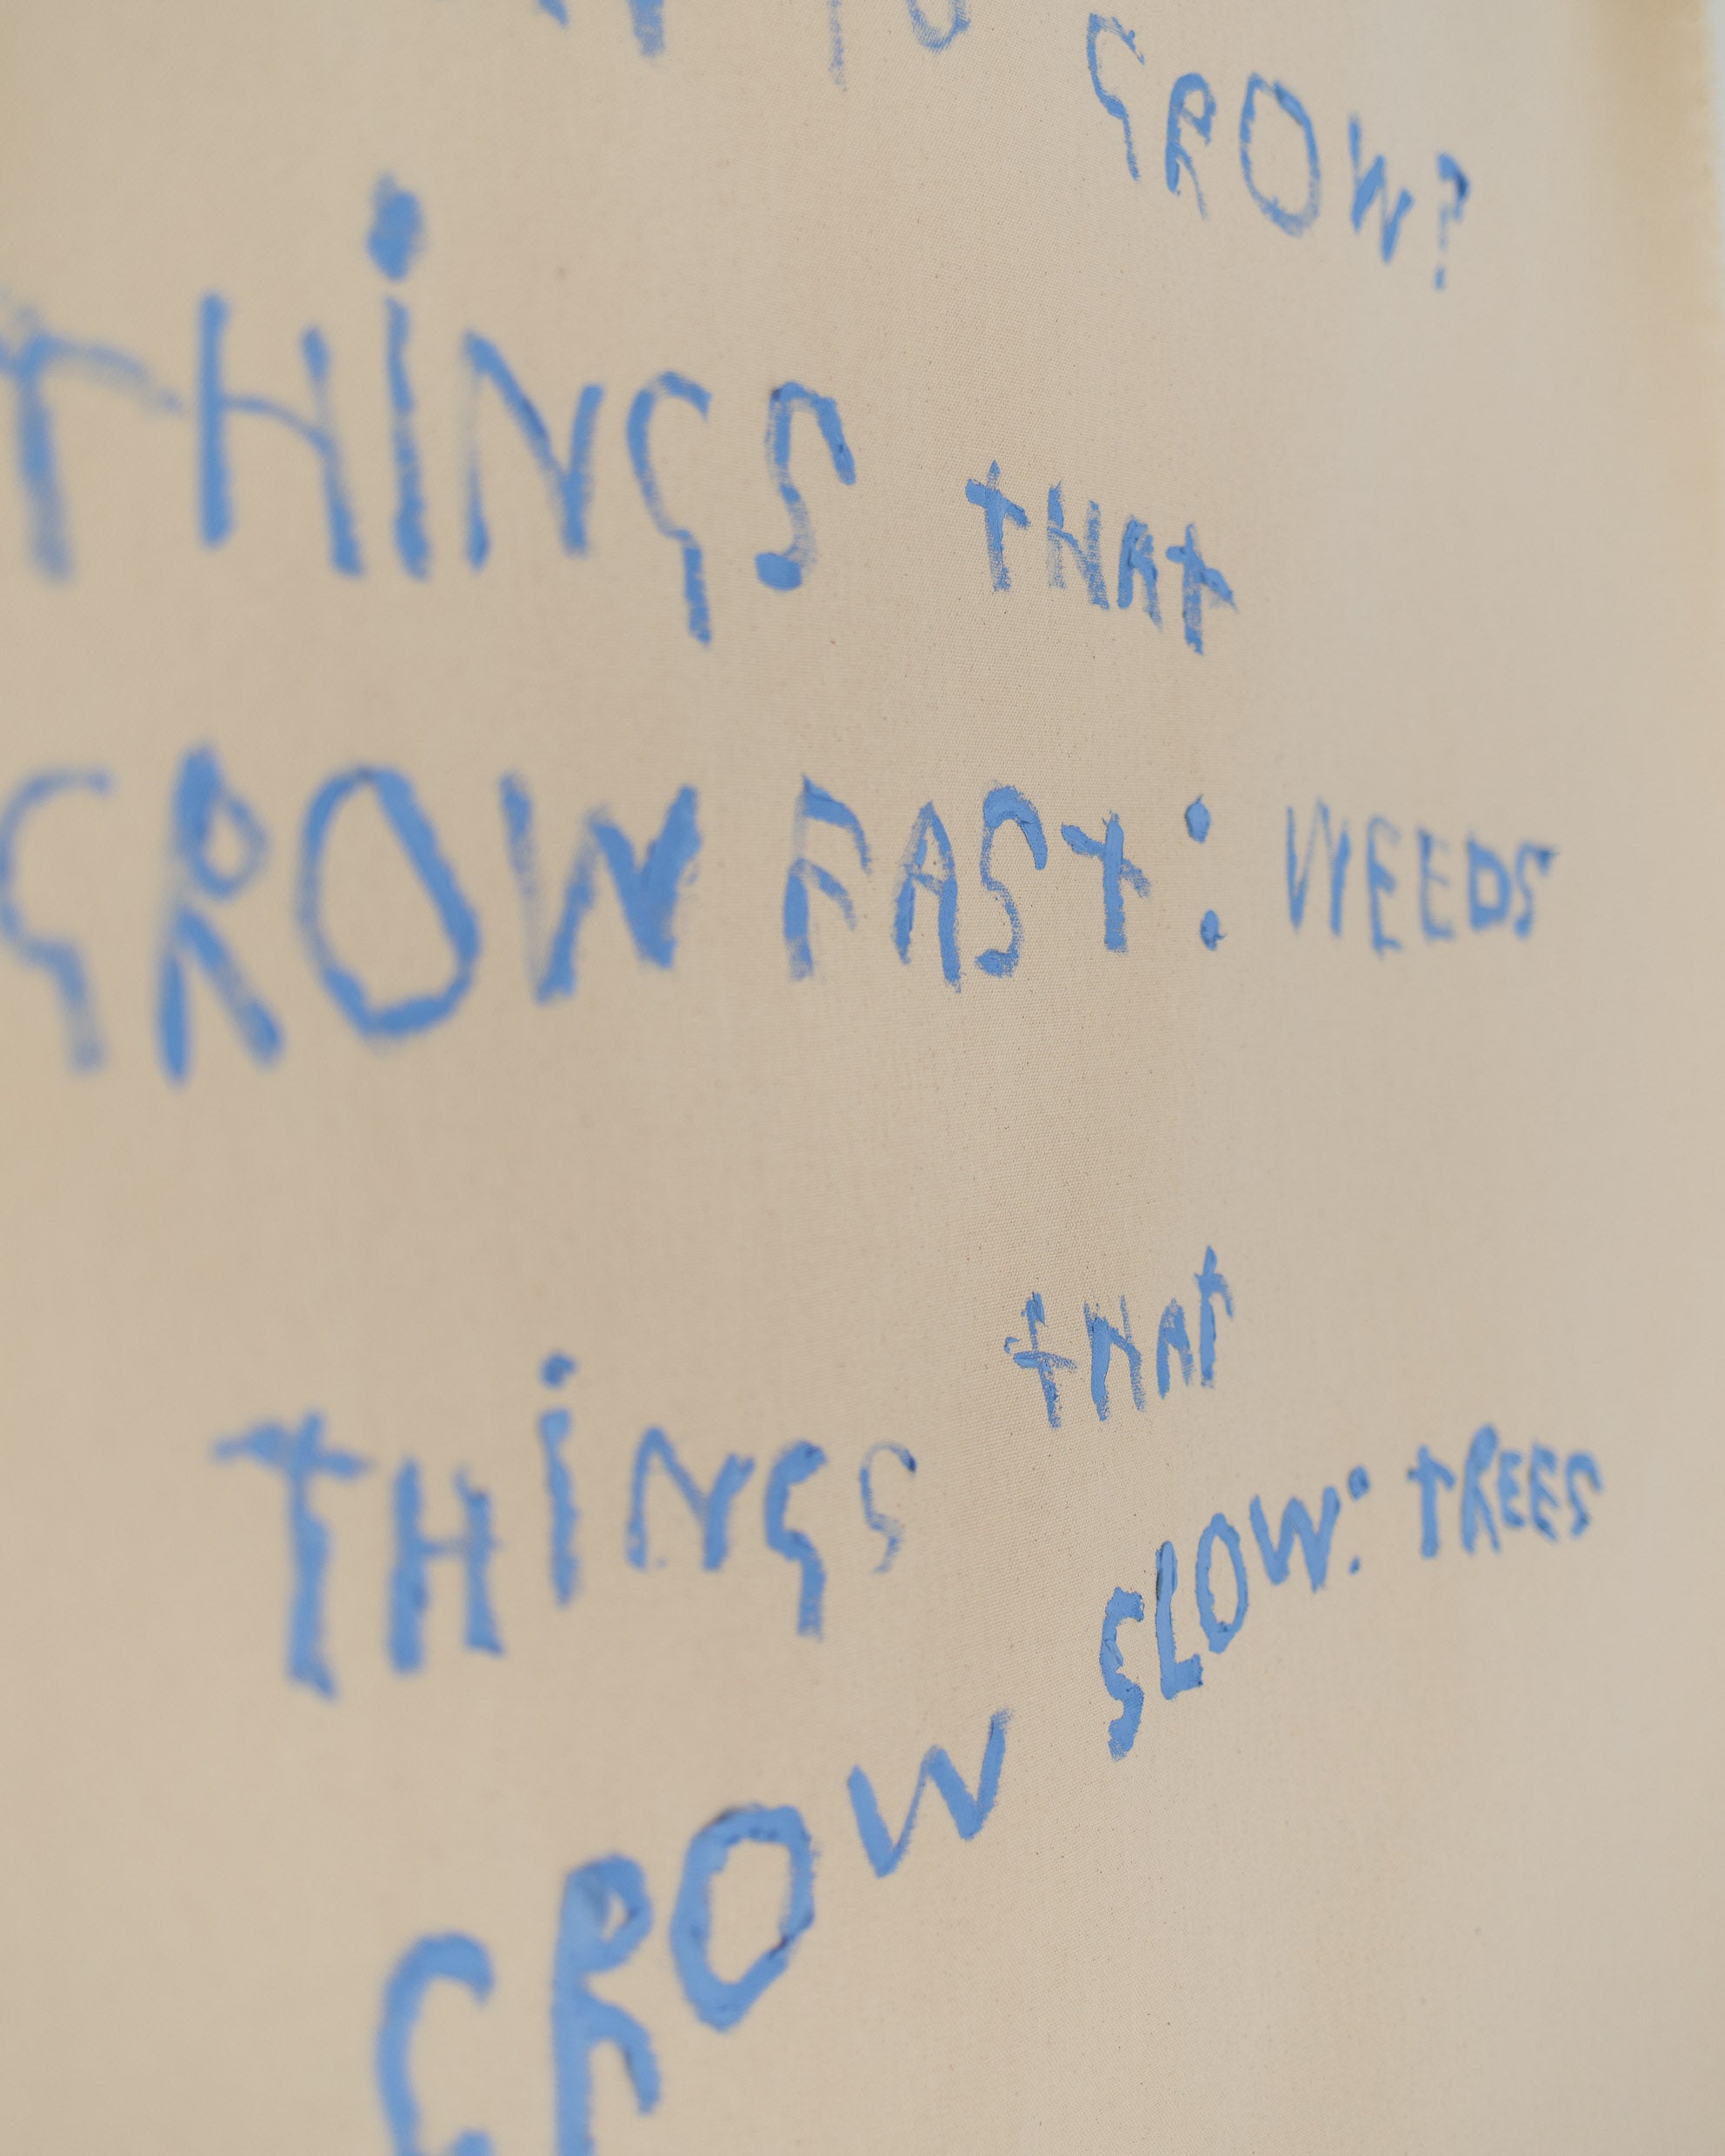 TO GROW?
THiNGS THAT
GROW FAST: WEEDS
THiNGS THAT
GROW SLOW: TREES